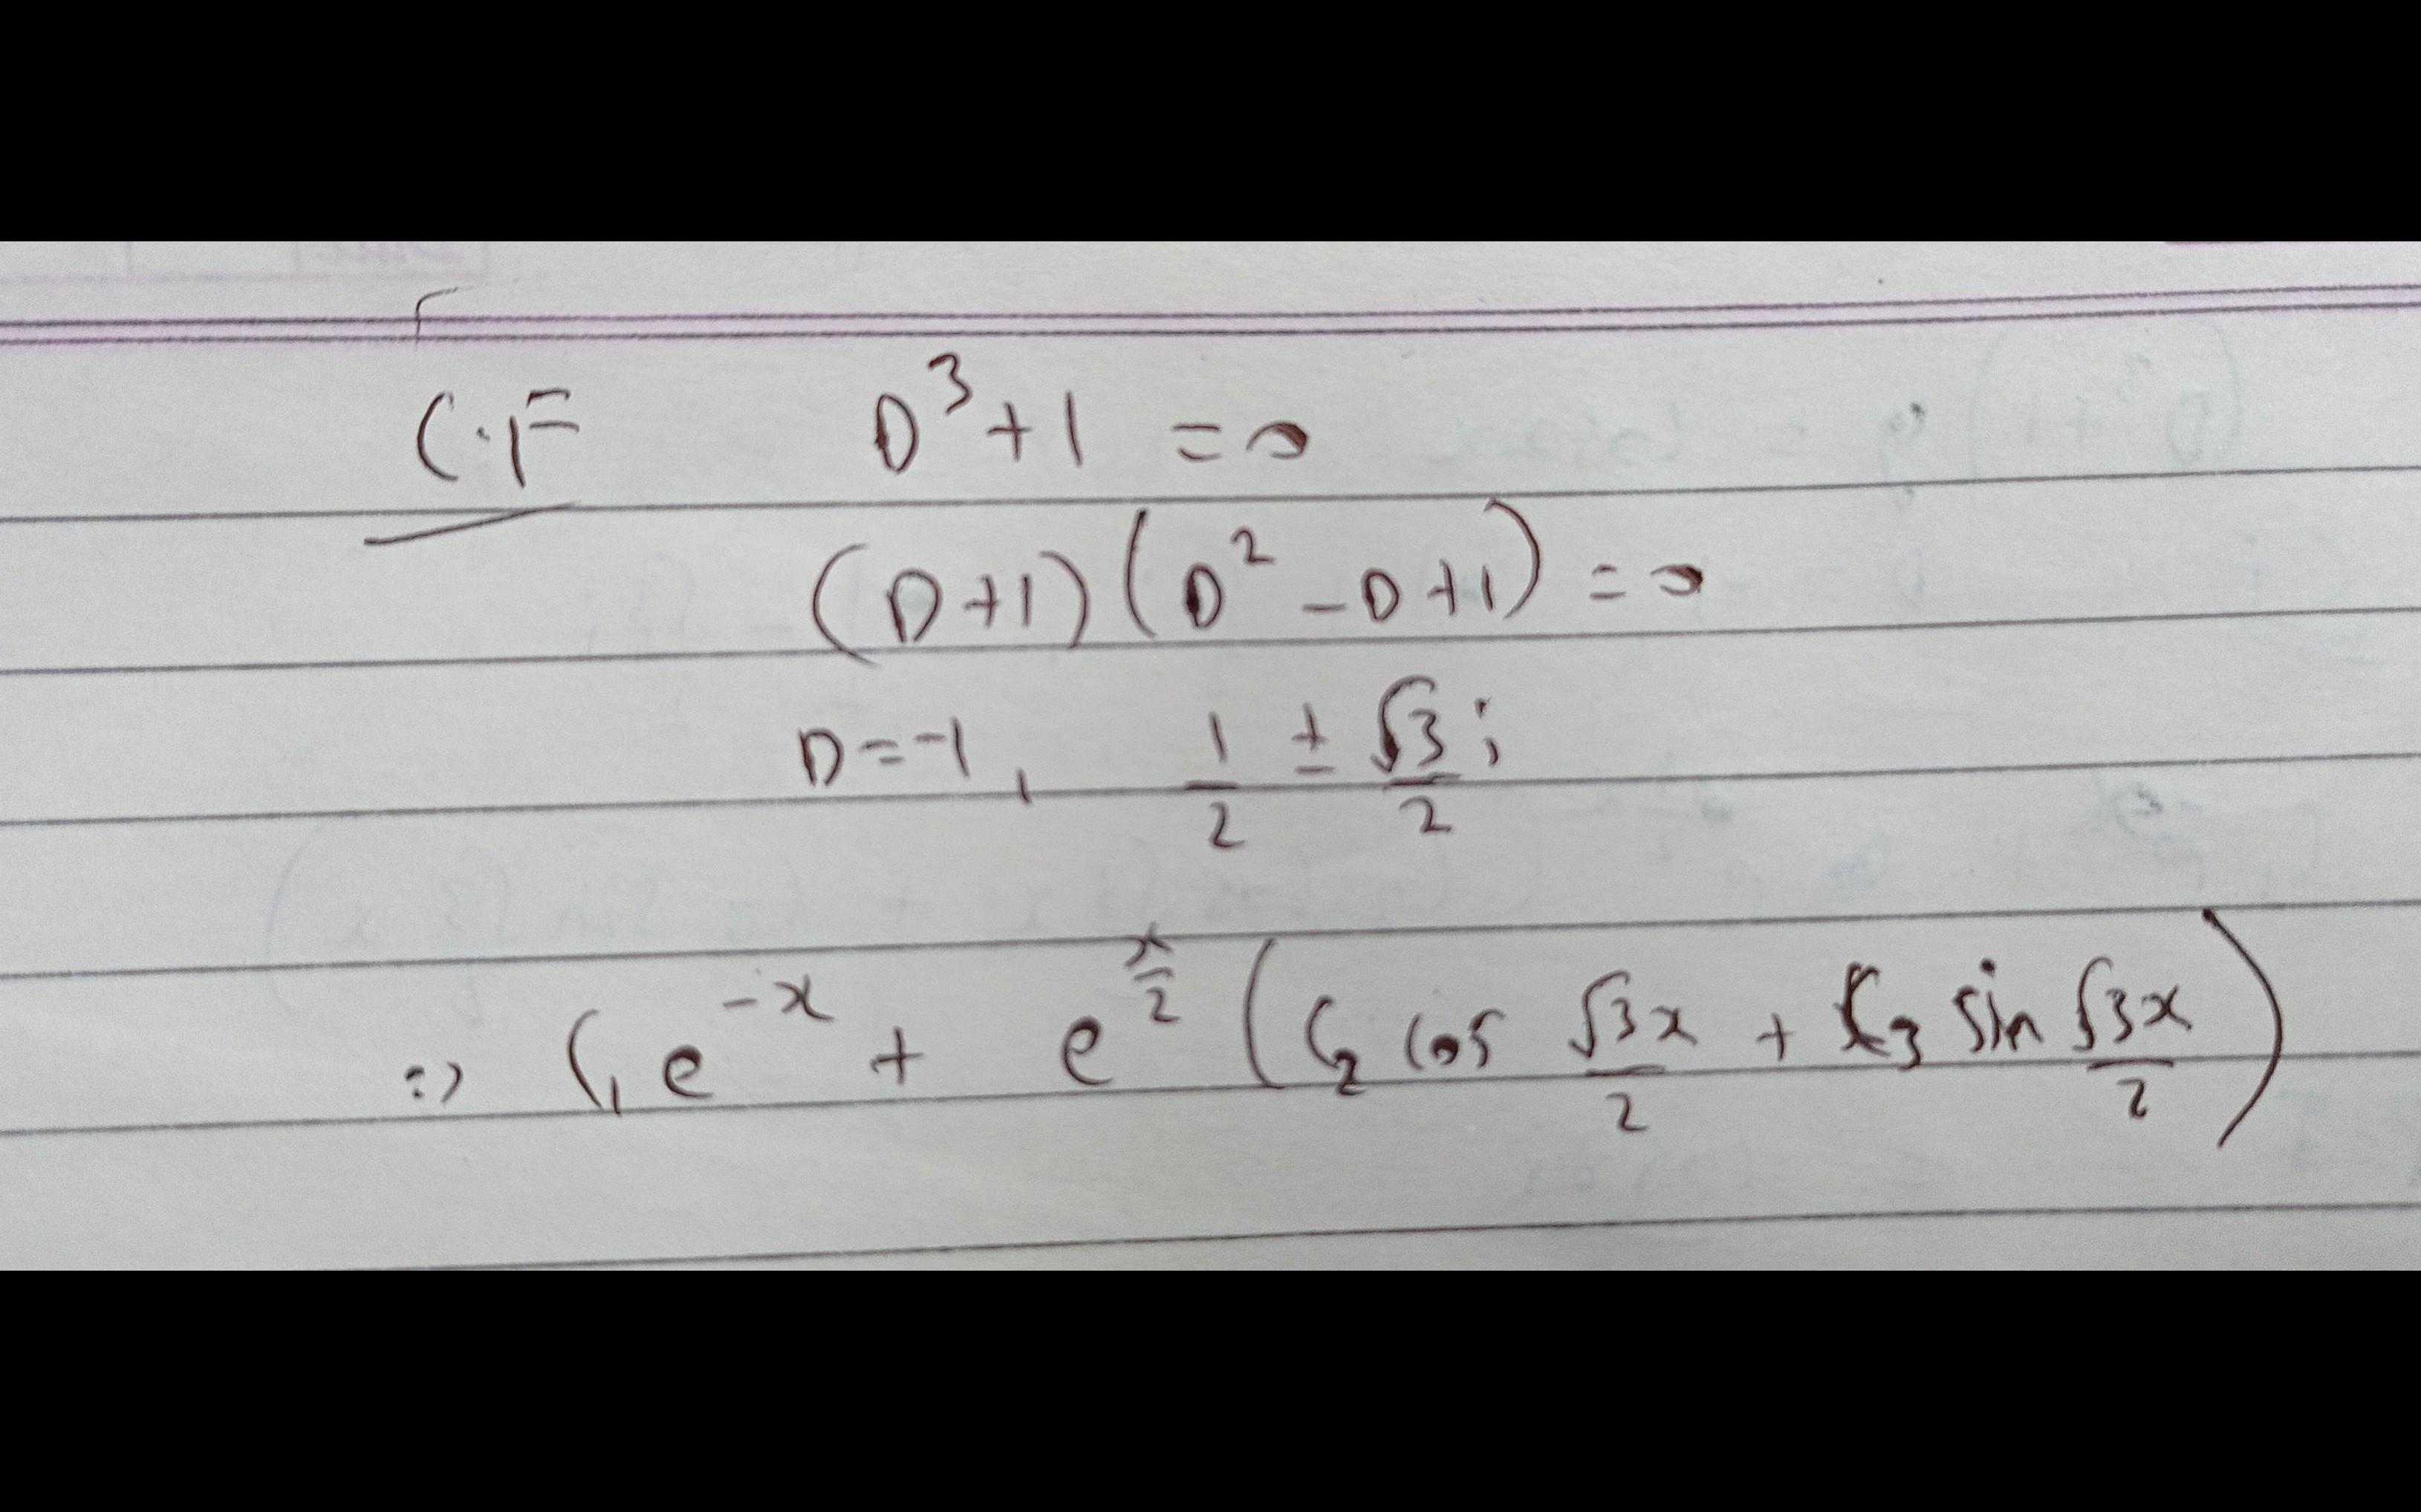 C.F D³+1 = 0
(D+1)(D²-D+1) = 0
D=-1, 1/2 ± √3/2 i
=> C₁e^(-x) + e^(x/2) (C₂ cos √3x/2 + C₃ sin √3x/2)